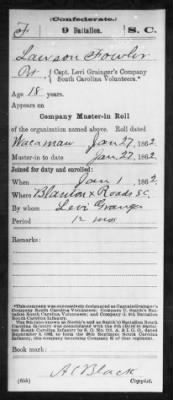 (Confederate.)
F 9 Battalion. S. C.
Lawson Fowler
Pvt, Capt. Levi Grainger's Company
South Carolina Volunteers.*
Age 18 years.
Appears on
Company Muster-in Roll
of the organization named above. Roll dated
Waccamaw Jan 27, 1862.
Muster-in to date Jan 27, 1862.
Joined for duty and enrolled:
When Jan 1, 1862.
Where Blanton X Roads S.C.
By whom Levi Grainger
Period 12 mos
Remarks:
*This company was successively designated as Captain Grainger's
Book mark:
A C Black
(655) Copyist.